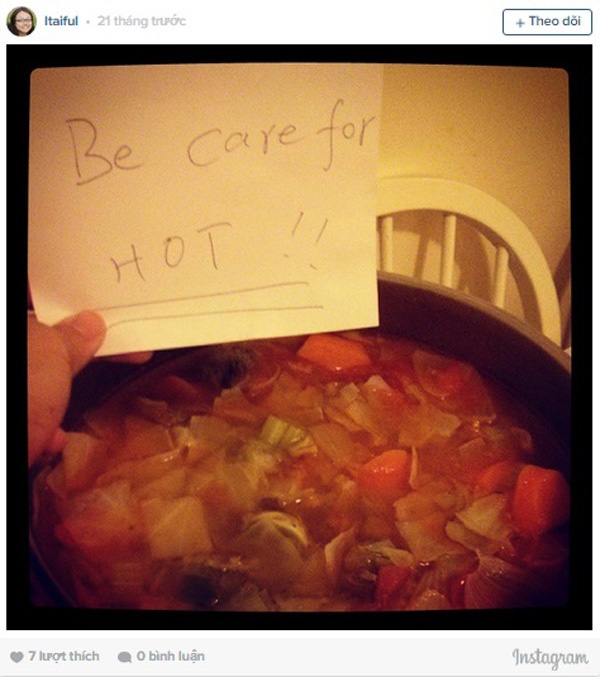 Itaiful • 21 tháng trước
+ Theo dõi
Be care for
HOT !!
7 lượt thích 0 bình luận
Instagram